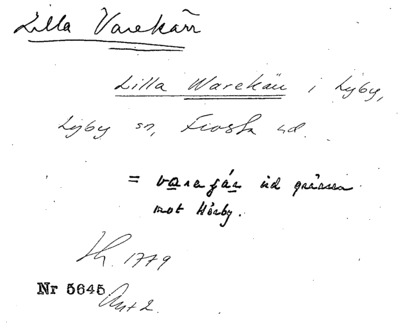 Lilla Varekärr
Lilla Warekärr i Lyby,
Lyby sn, Frosta hd.
= varakär vid gränsen
mot Hörby.
1779
Nr 5645
Akt 2.